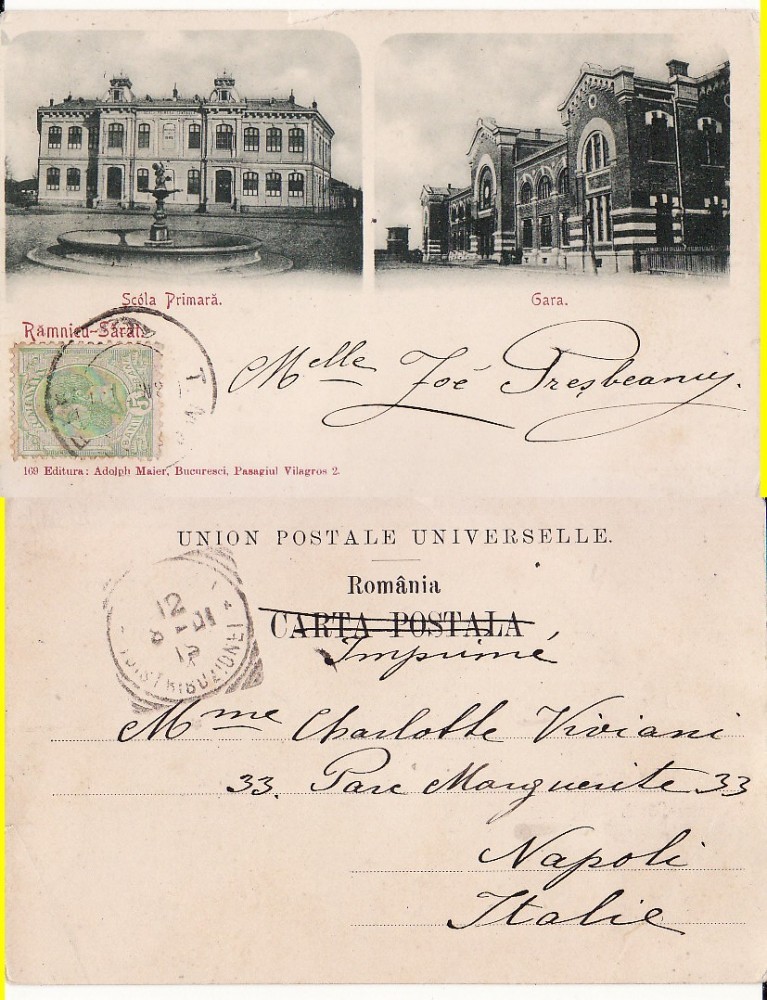 Scóla Primară.
Gara.
Râmnicu-Sărat.
Melle Zoé
169 Editura: Adolph Maier, Bucuresci, Pasagiul Vilagros 2.
UNION POSTALE UNIVERSELLE.
România
CARTA POSTALA
Imprimé
12
DISTRIBUZIONE
Mme Charlotte Viviani
33. Parc Marguerite 33
Napoli
Italie